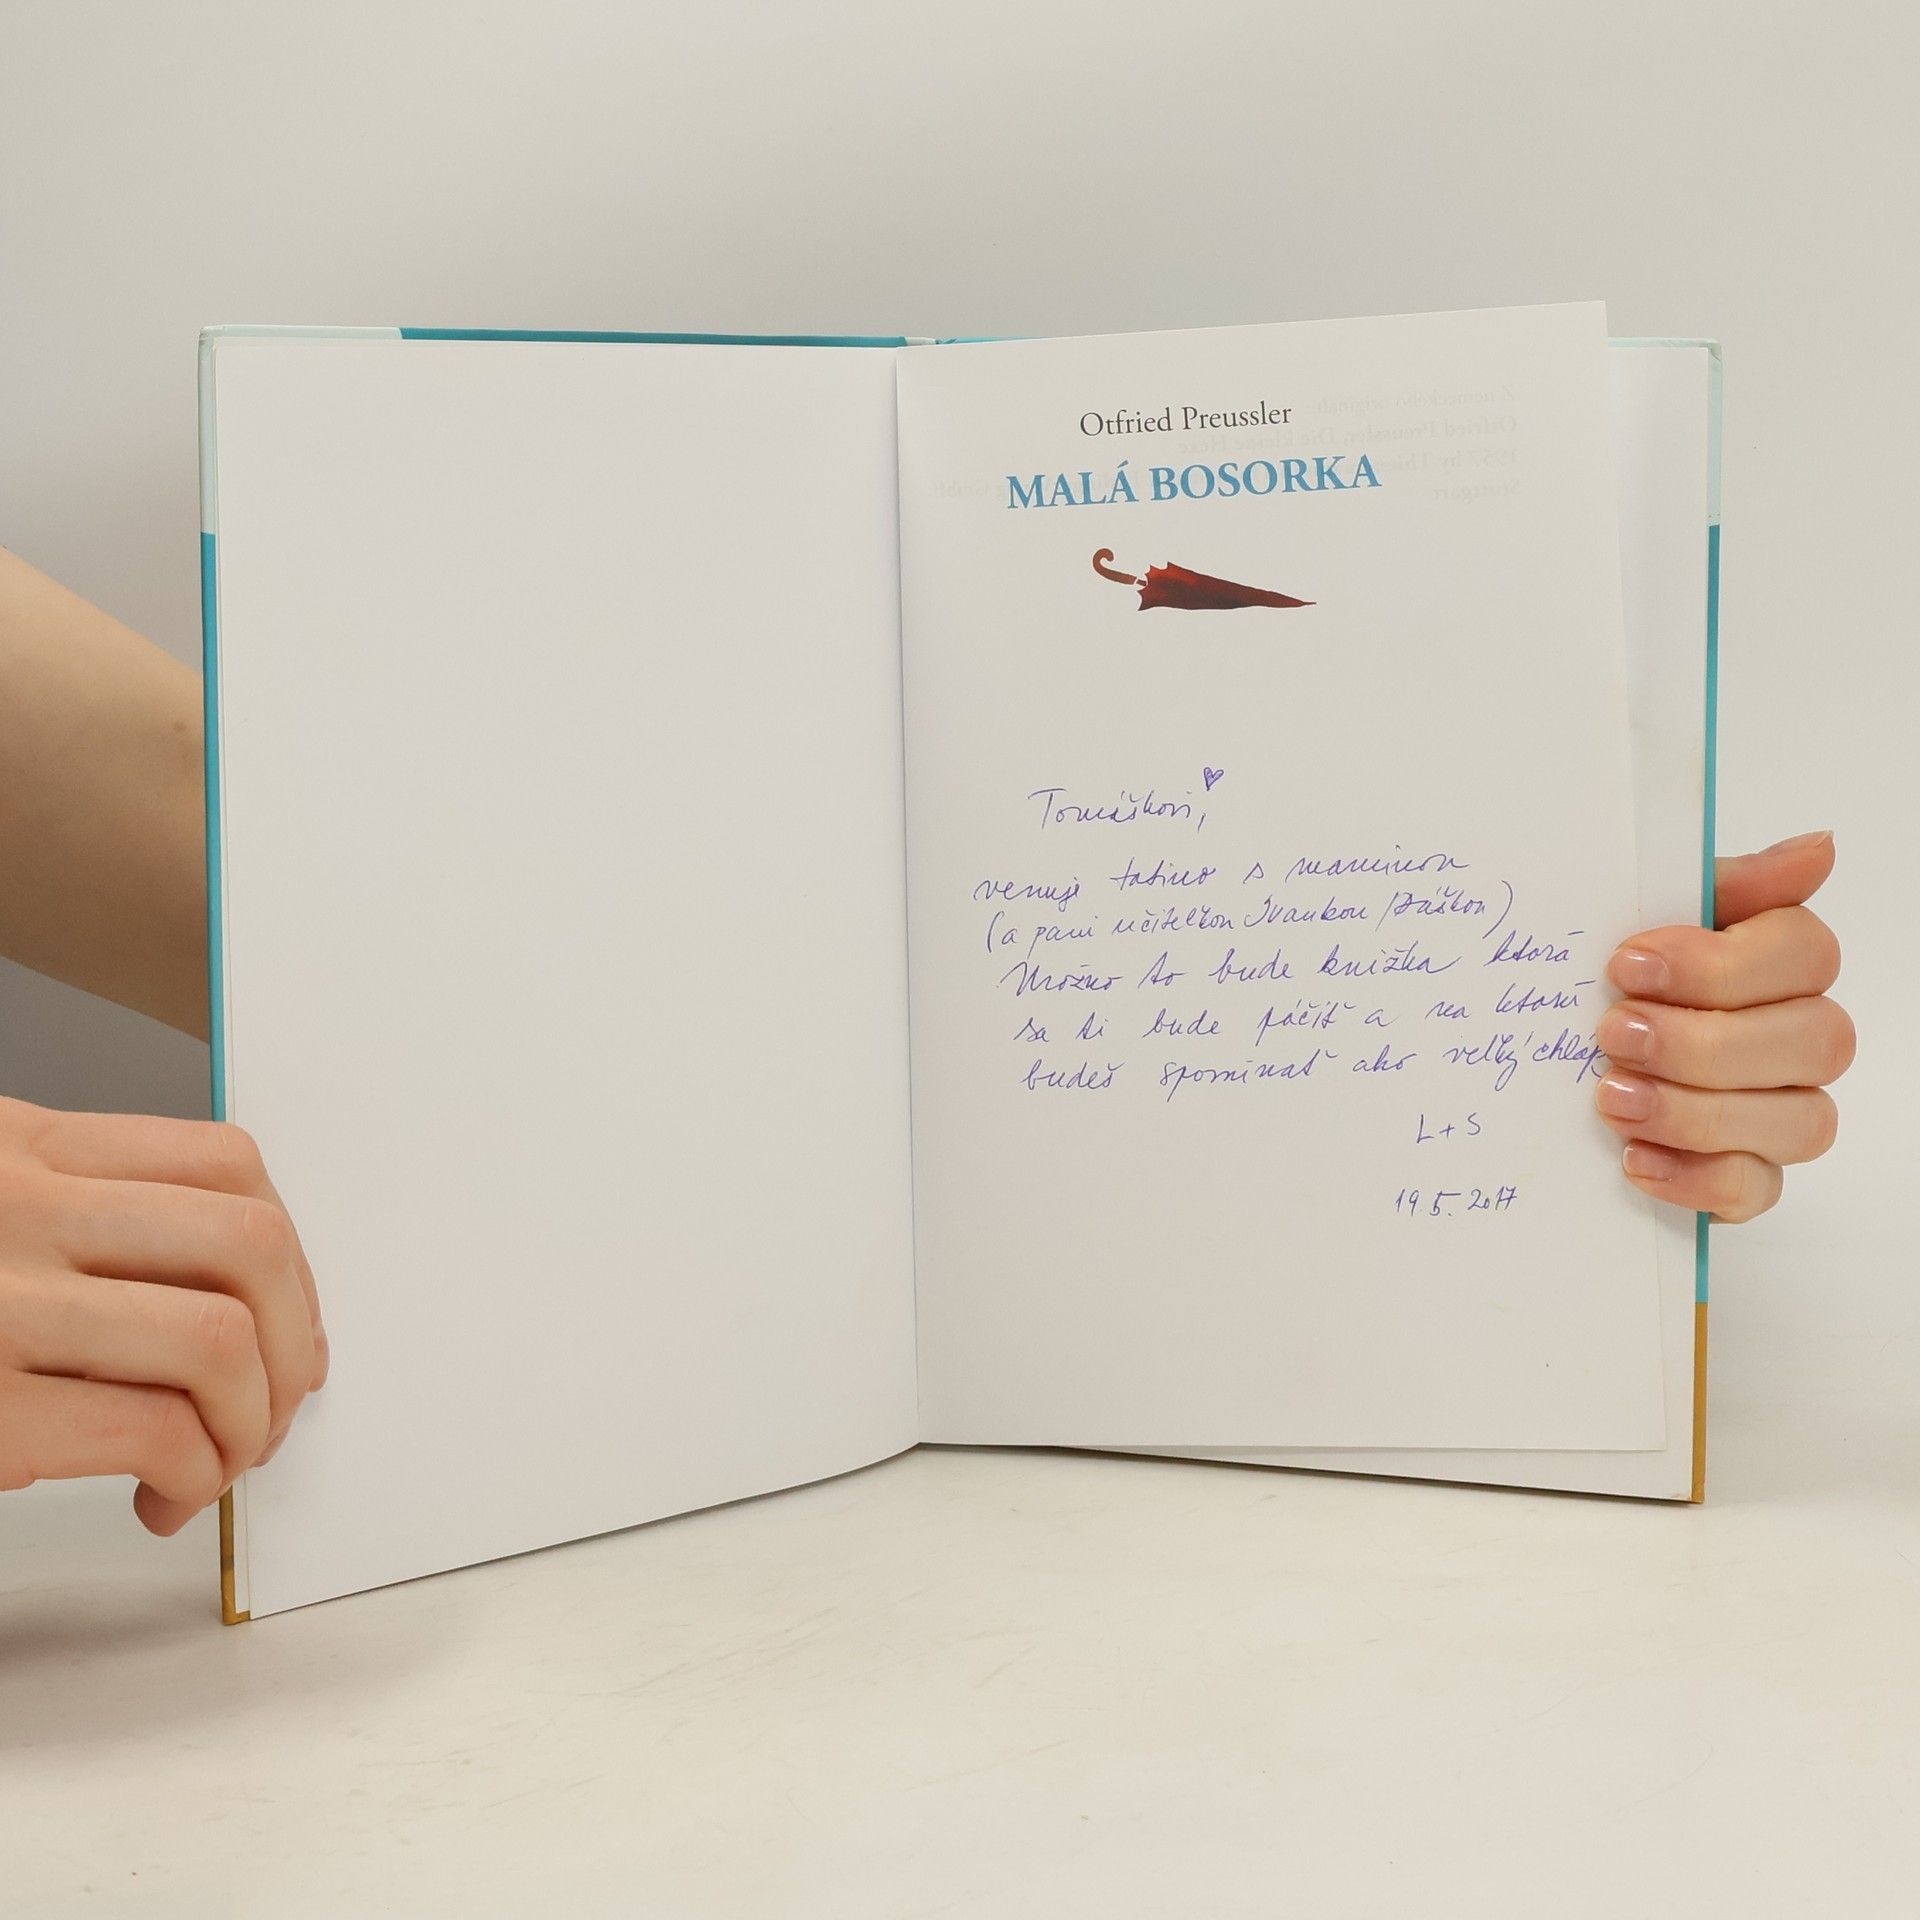 Otfried Preussler
MALÁ BOSORKA
Tomáškovi,
venuje tatino s maminou
(a pani učiteľkou Ivankou
Možno to bude knižka ktorá
sa ti bude páčiť a na ktorú
budeš spomínať ako veľký chlap
L+S
19.5.2017